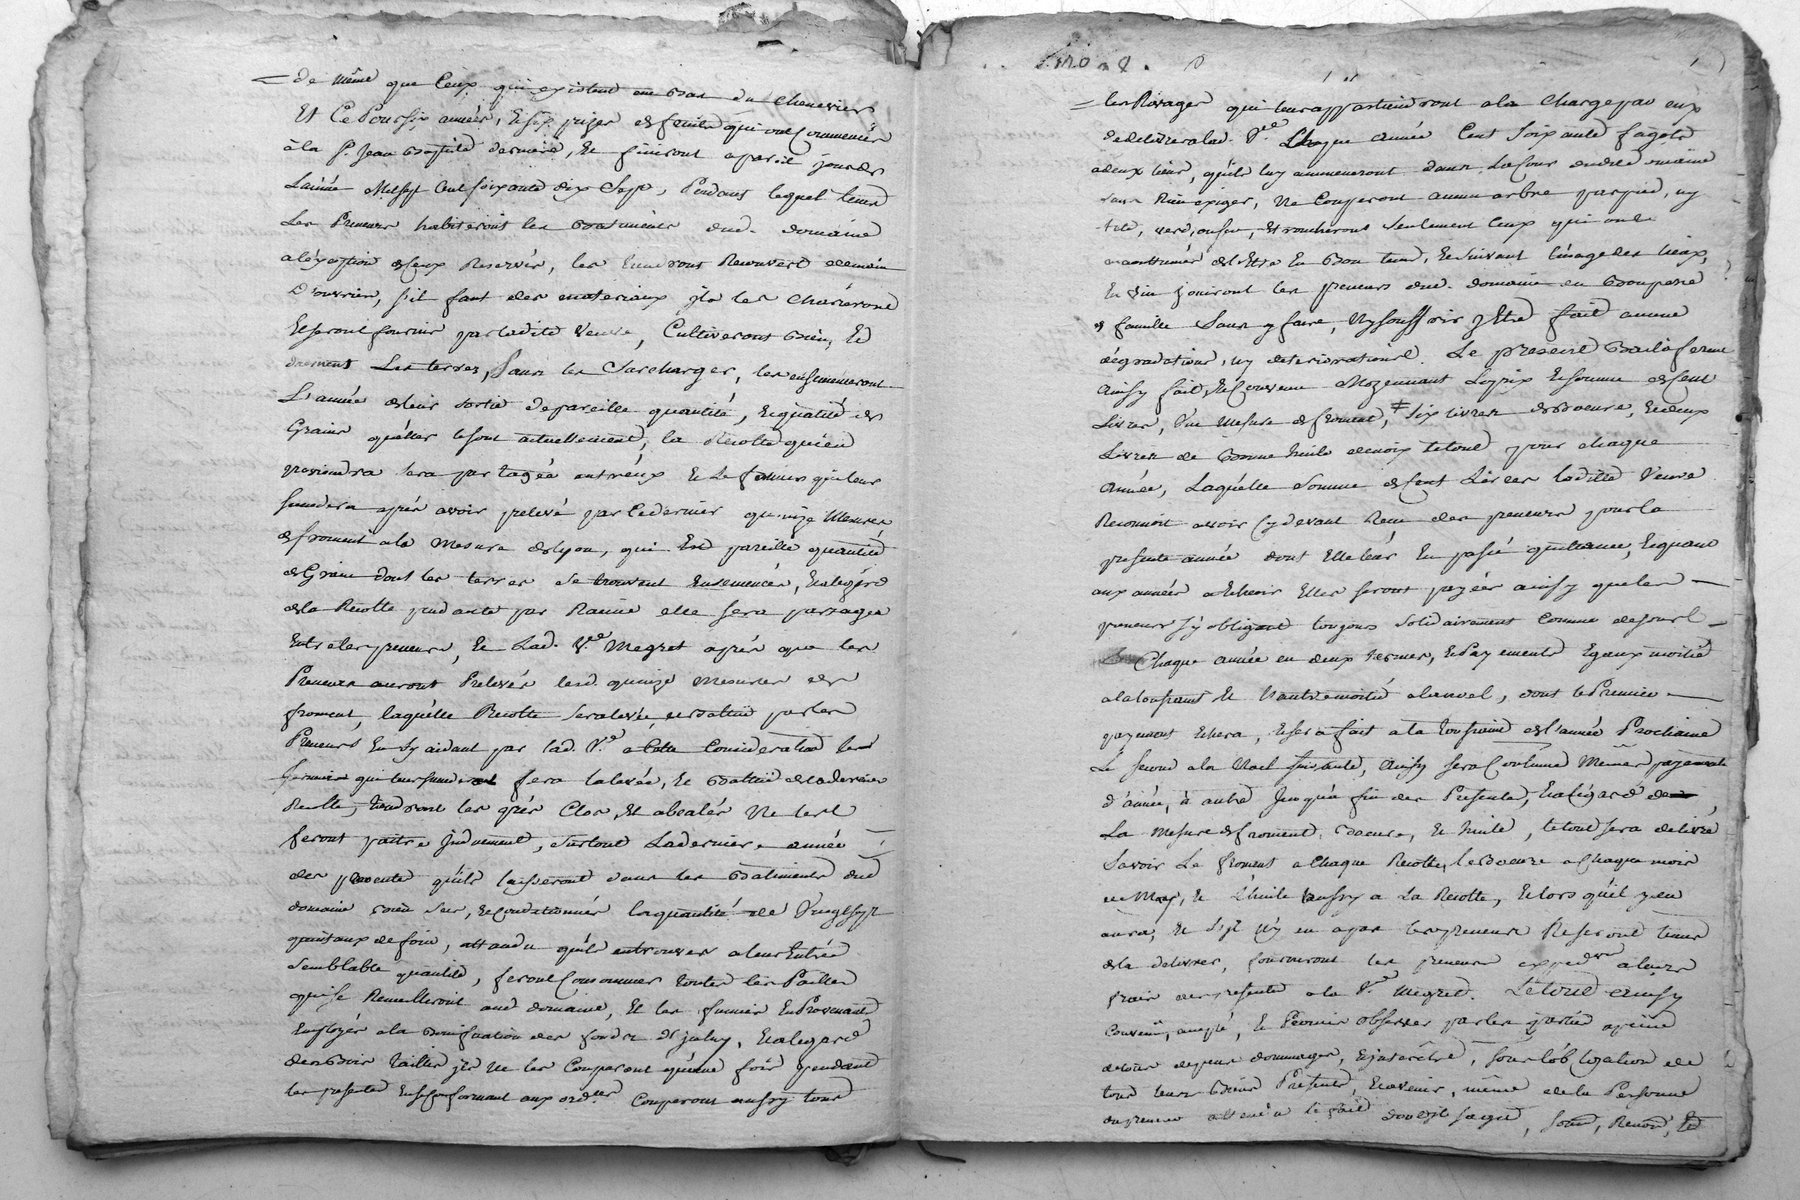 de même que Ceux qui existent au bas du Chenevier
Et Ce Pour six années, Et six prises de fruits qui ont Commencé
à la St. Jean Baptiste derniere, Et finiront a pareil jour de
L'année Mil sept Cent soixante dix Sept, Pendant lequel tems
Les Preneurs habiteront les Batiments dud. domaine
a l'éxception de Ceux Reservés, les tiendront Recouvert de main
D'ouvrier, s'il faut des materiaux ils les Charieront
Et seront fournis par ladite Veuve, Cultiveront Bien, Et
duement Les terres, Sans les Surcharger, les ensemenceront
L'année de leur sortie de pareille quantité, Et qualité de
Grains quelles le sont actuellement, la Recolte qui en
proviendra sera partagée entr'eux Et Le fermier qui leur
succedera après avoir prelevé par Ce dernier quinze Mesures
de froment a la Mesure de lyon, qui Est pareille quantité
de Grain dont les terres se trouvent Ensemencées, Et a l'égard
de la Recolte pendante par Racine elle sera partagée
Entre les preneurs, Et Lad. Ve. Megret après que les
Preneurs auront Prelevés lesd. quinze Mesures de
froment, laquélle Recolte sera levée, et Battue par les
Preneurs En s'y aidant par lad. Ve. a Cette Consideration le
fermier qui leur succedera fera la levée, Et Battue de la derniere
Recolte, tiendront les prés Clos, Et aboalés Ne les
feront paitre Induement, surtout La derniere année
des presente qu'ils laisseront dans les Batiments dud.
domaine bien sec, Et Conditionnés la quantité de Vingt sept
quintaux de foin, attendu qu'ils en trouvés a leur Entrée
Semblable quantité, feront Consommer toutes les Pailles
qui se Recueilliront aud. domaine, Et les fumier En Provenants
Employés a la Bonification des fonds d'Iceluy, Et a l'égard
des Bois taillis ils Ne les Couperont qu'une fois pendant
les presentes En se Conformant aux ord.ces Couperont aussy tous
les Rivages qui leur appartiendront a la Charge par eux
de delivrer a lad. Ve. Chaque année Cent soixante fagots
a deux liens, qu'ils luy ammeneront dans La Cour dudit domaine
sans Rien exiger, Ne Couperont aucun arbre par pied, ny
tete, verd, ou sec, Ebrancheront seulement Ceux qui ont
accoutumés de l'Etre En Bon tems, Et suivant l'usage des lieux,
En fin Jouiront les preneurs dud. domaine en Bon pere
de famille Sans y faire, Ny souffrir y Etre fait aucune
dégradations, ny deteriorations. Le present Bail a ferme
Ainsy fait, Et Convenu Moyennant Le prix Et somme de Cent
Livres, Une Mesure de froment, ≠ six livres de Beurre, Et deux
Livres de Bonne huile de noix le tout pour chaque
Année, Laquélle somme de Cent Livres ladite Veuve
Reconnoit avoir Cy devant Recu des preneurs pour la
presente année dont Elle leur En passé quittance, Et quant
aux années a Echeoir Elles seront payées ainsy que les
preneurs s'y obligent toujours solidairement Comme dessus
Chaque année en deux termes, Et Payements Egaux moitié
a la toussaint Et l'autre moitié a la noel, dont le Premier
payement Echera, Et sera fait a la toussaint de l'année Prochaine
Le second a la Noel suivante, Ainsy sera Continué Mêmes payements
d'année, à autre Jusqu'à fin des Presentes, Et a l'égard de
La Mesure de froment, Beurre, Et huile, le tout sera delivré
Savoir Le froment a Chaque Recolte, le Beurre a Chaque mois
de May, Et L'huile aussy a La Recolte, Et lors qu'il y en
aura, Et s'il n'y en a pas les preneurs Ne seront tenus
de la delivrer, fourniront les preneurs expedon. a leurs
frais des presentes a la Ve. Megret. Le tout ainsy
Convenu, accepté, Et Promis observer par les parties a peine
de tous depens dommages, Et interêts, sous l'obligation de
tous leurs Biens Presents, Et avenir, même de la Personne
du preneur attendu le Bail dont il s'agit, soum, Renon, Et